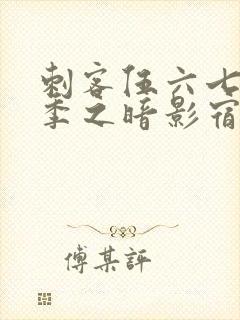 刺客伍六七
季之暗影宿
傅某評